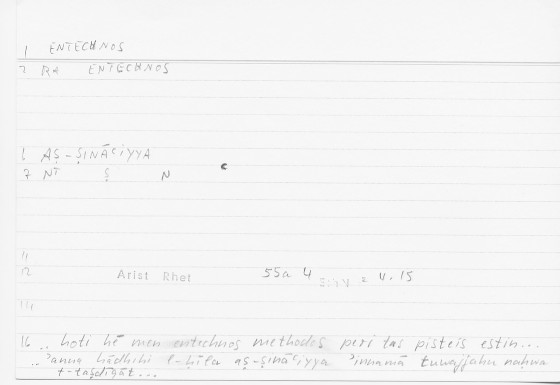 1 ENTECHNOS
2 RA ENTECHNOS
6 AṢ-ṢINĀʿIYYA
7 NT Ṣ N
11
12 Arist Rhet 55a 4 = v. 15
14
16 .. hoti hē men entechnos methodos peri tas pisteis estin...
.. ʾanna hādhihi l-ḥīla aṣ-ṣināʿiyya ʾinnamā tuwajjahu naḥwa
t-taṣdīqāt...